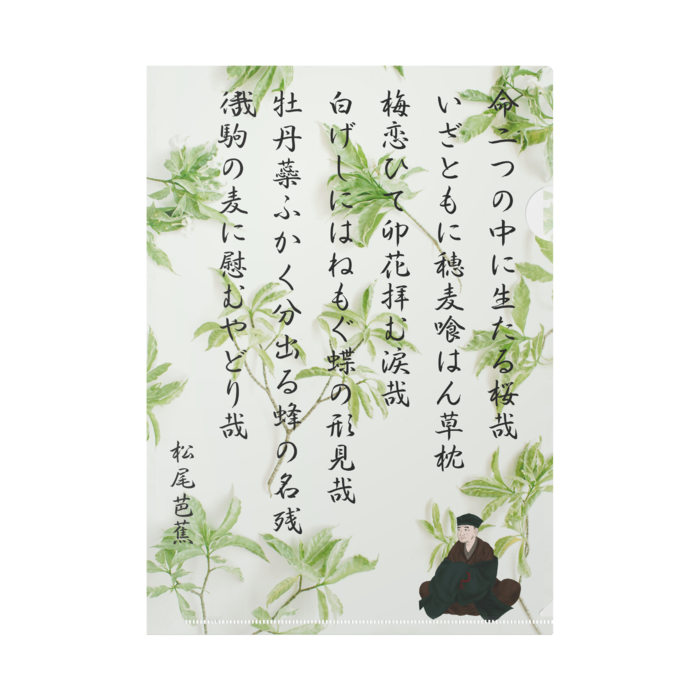 命二つの中に生たる桜哉
いざともに穂麦喰はん草枕
梅恋ひて卯花拝む涙哉
白げしにはねもぐ蝶の形見哉
牡丹藥ふかく分出る蜂の名残
駒の麦に慰むやどり哉
松尾芭蕉